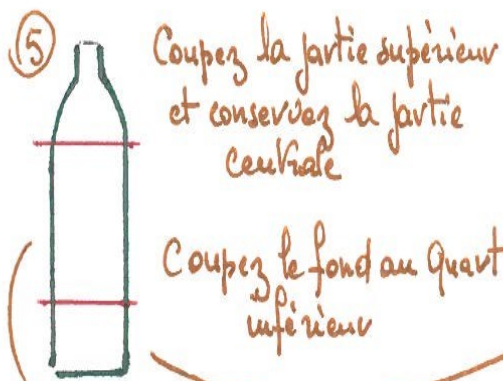 5
Coupez la partie supérieur
et conservez la partie
centrale
Coupez le fond au Quart
inférieur